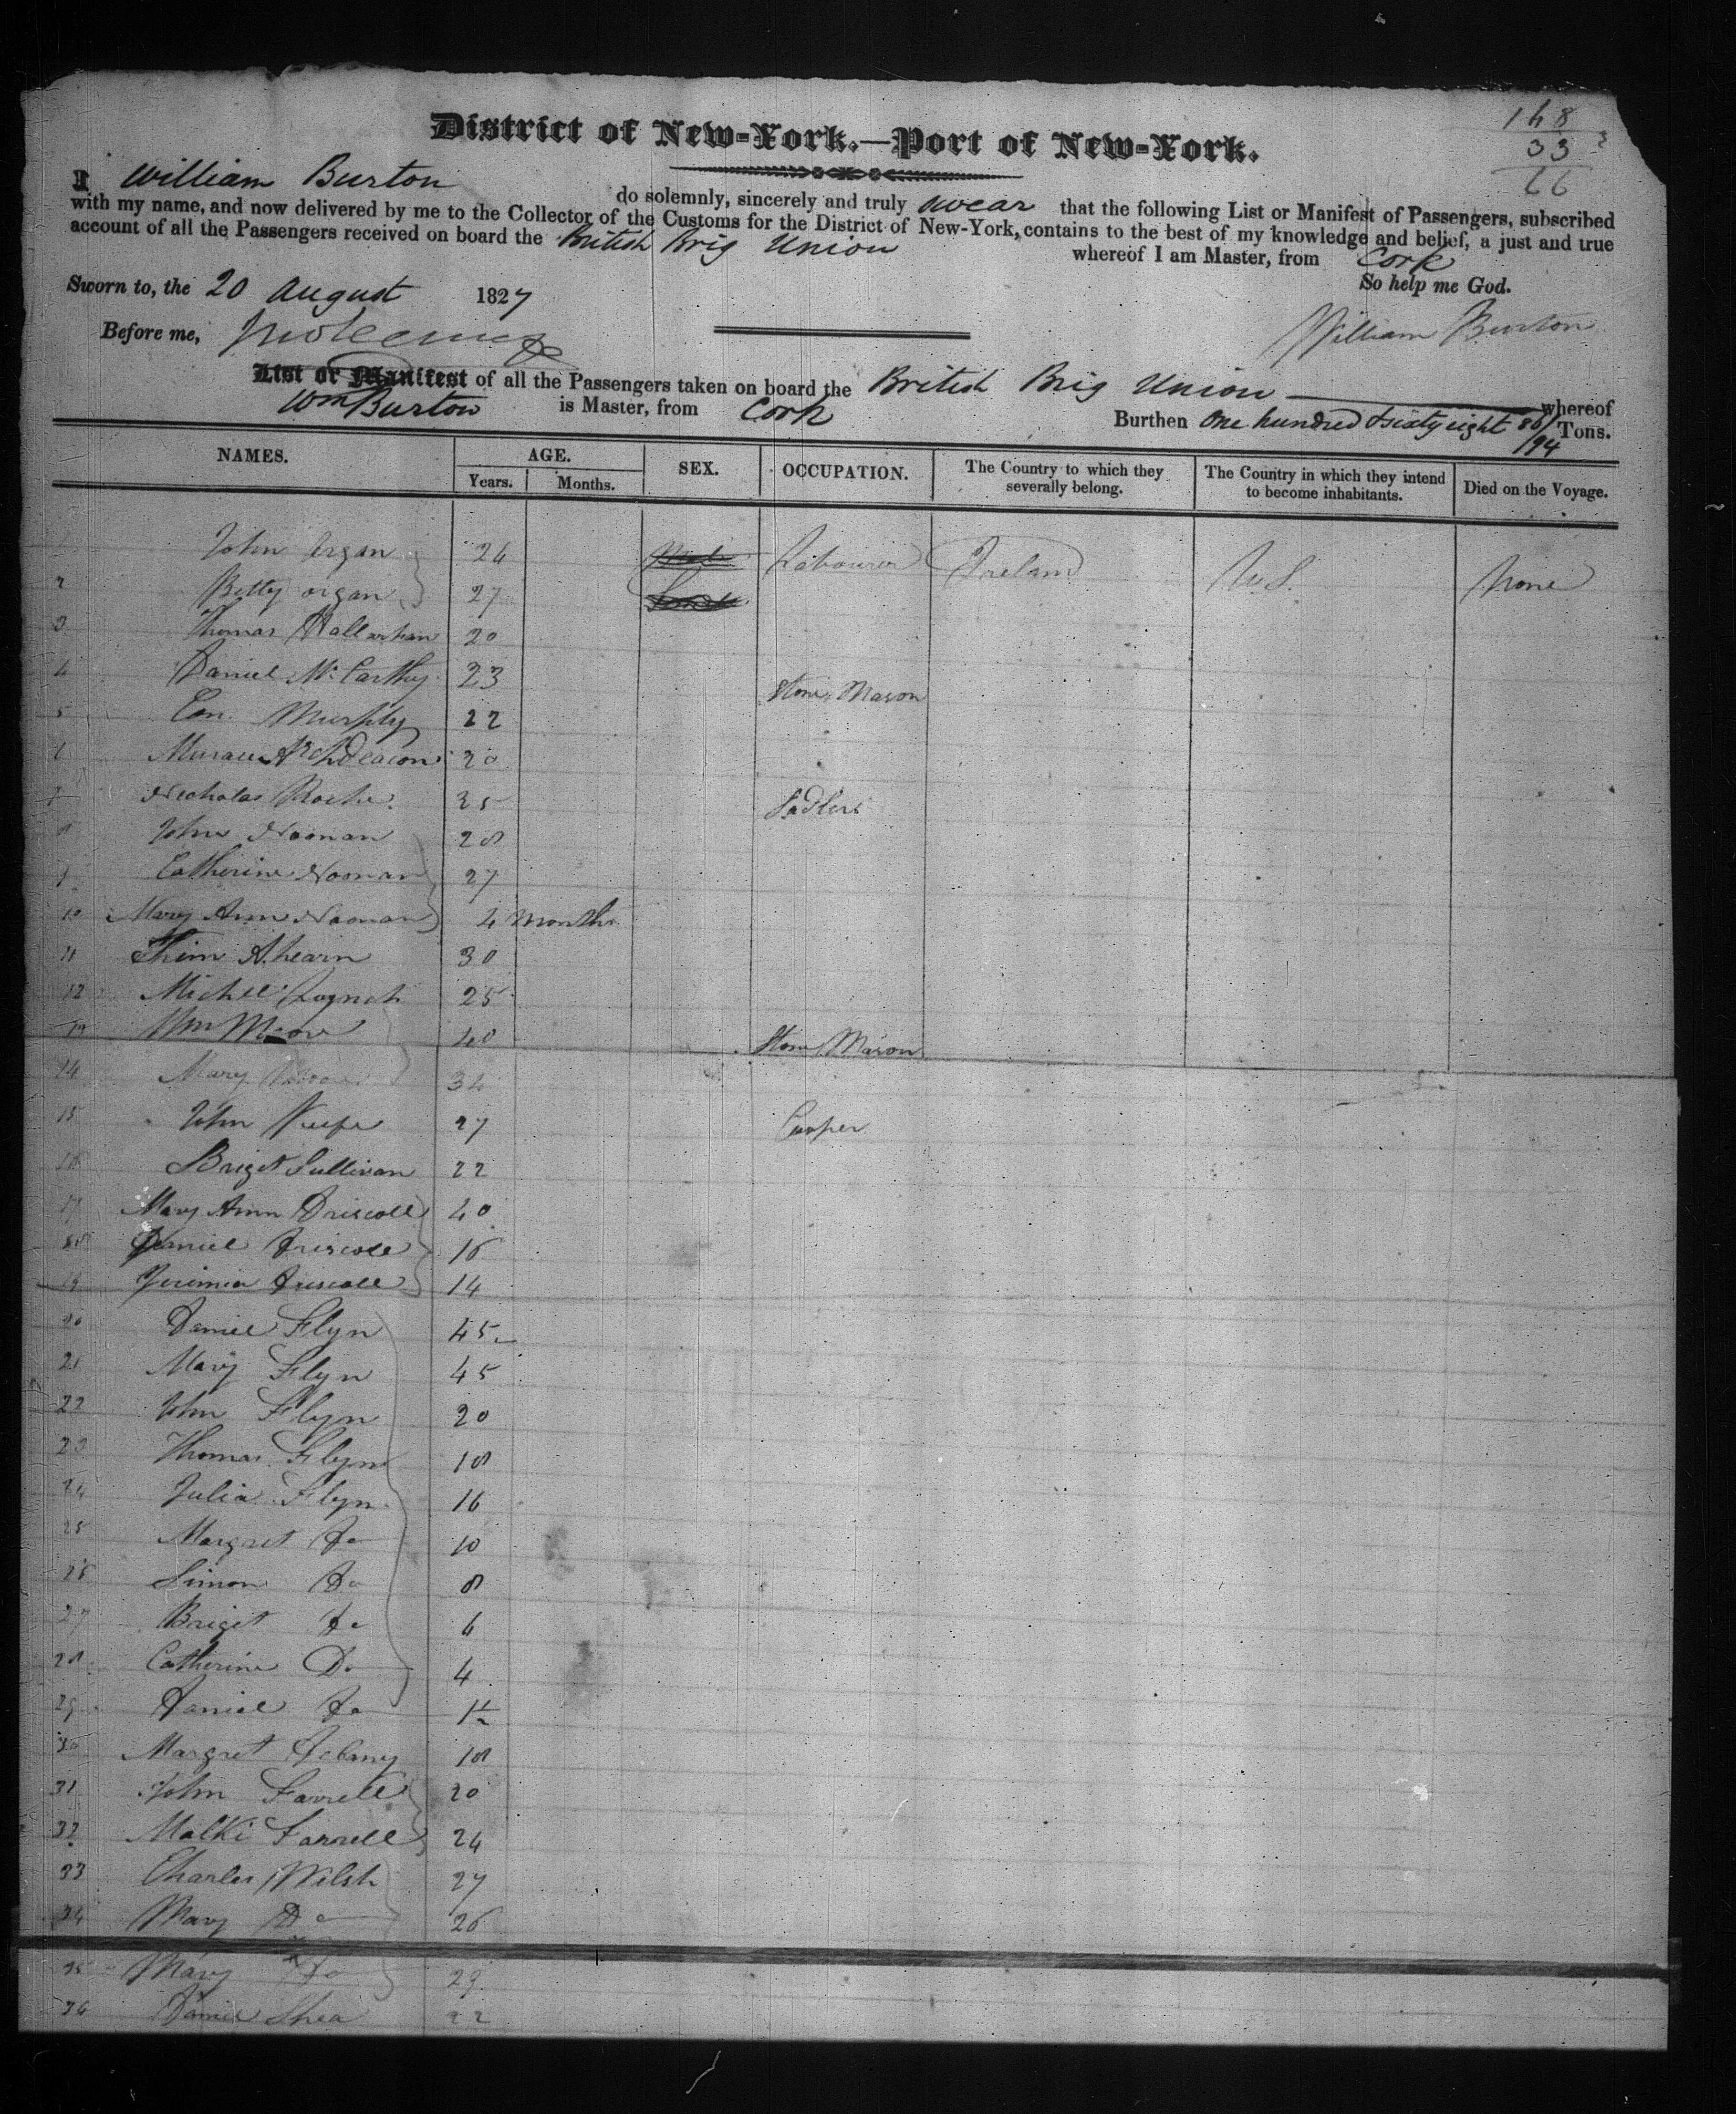 168
33
66
District of New-York.—Port of New-York.
I William Burton do solemnly, sincerely and truly swear that the following List or Manifest of Passengers, subscribed
with my name, and now delivered by me to the Collector of the Customs for the District of New-York, contains to the best of my knowledge and belief, a just and true
account of all the Passengers received on board the British Brig Union whereof I am Master, from Cork
So help me God.
Sworn to, the 20 August 1827
William Burton
Before me,
List or Manifest of all the Passengers taken on board the British Brig Union whereof
Wm Burton is Master, from Cork Burthen One hundred & sixty eight 86/94 Tons.
NAMES. AGE. Years. Months. SEX. OCCUPATION. The Country to which they severally belong. The Country in which they intend to become inhabitants. Died on the Voyage.
John Organ 26 Labourer Ireland U.S. None
2 Betty organ 27
3 Thomas Hallarhan 20
4 Daniel McCarthy 23 Stone Mason
5 Con. Murphy 22
6 Archdeacon 20
7 Nicholas Roche 35 Sadlers
8 John Noonan 28
9 Catherine Noonan 27
10 Mary Ann Noonan 4 months
11 Thim Ahearn 30
12 Michll Loynch 25
13 Wm Moore 40 Stone Mason
14 Mary 34
15 John Keefe 27 Cooper
16 Briget Sullivan 22
17 Mary Ann Driscoll 40
18 Daniel Driscoll 16
19 Jerimia Driscoll 14
20 Daniel Flyn 45
21 Mary Flyn 45
22 John Flyn 20
23 Thomas Flyn 18
24 Julia Flyn 16
25 Margret Do 10
26 Simon Do 8
27 Briget Do 6
28 Catherine Do 4
29 Daniel Do 1½
30 Margret Delany 18
31 John Farrell 20
32 Malki Farrell 24
33 Charles Wilsh 27
34 Mary Do 26
35 Mary Do 29
36 Daniel Shea 22